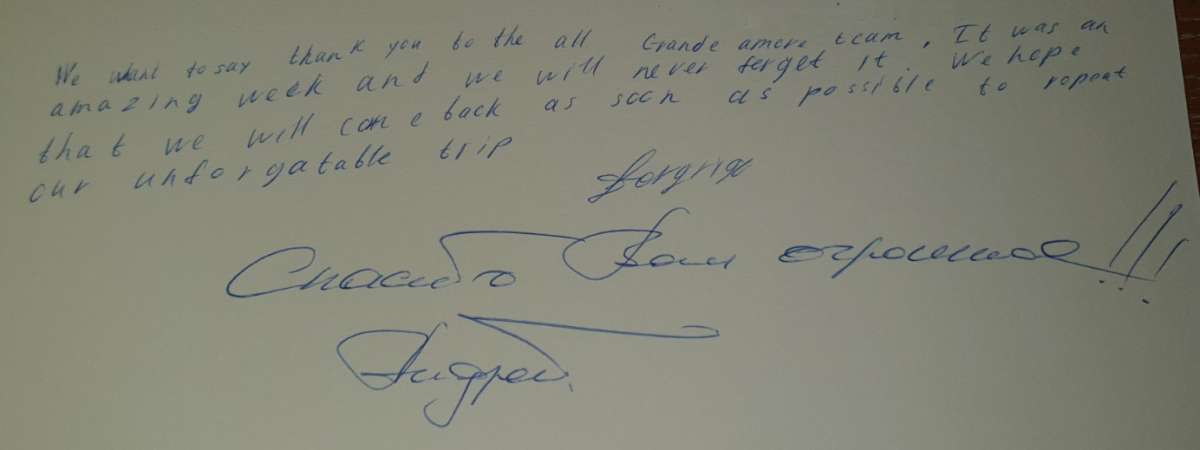 We want to say thank you to the all Grande amore team. It was an
amazing week and we will never forget it. We hope
that we will come back as soon as possible to repeat
our unforgatable trip
Спасибо Вам огромное!!!
Андрей.